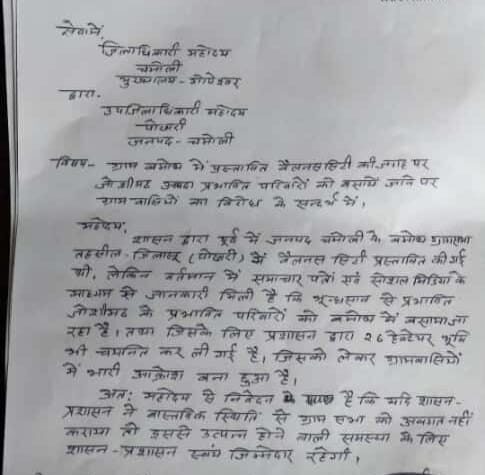 सेवा में,
जिलाधिकारी महोदय
चमोली
मुख्यालय - गोपेश्वर
द्वारा.
उपजिलाधिकारी महोदय
पोखरी
जनपद - चमोली
विषय - ग्राम बमोथ में प्रस्तावित वैलनस सिटी की जगह पर
जोशीमठ आपदा प्रभावित परिवारों को बसाये जाने पर
ग्राम वासियों का विरोध के सन्दर्भ में,
महोदय,
शासन द्वारा पूर्व में जनपद चमोली के बमोथ ग्रामसभा
तहसील - जिलासू (पोखरी) में वैलनस सिटी प्रस्तावित की गई
थी, लेकिन वर्तमान में समाचार पत्रों एवं सोशल मिडिया के
माध्यम से जानकारी मिली है कि भू-धसाव से प्रभावित
जोशीमठ के प्रभावित परिवारों को बमोथ में बसाया जा
रहा है। तथा जिसके लिए प्रशासन द्वारा 26 हेक्टेयर भूमि
भी चयनित कर ली गई है, जिसको लेकर ग्रामवासियों
में भारी आक्रोश बना हुआ है।
अतः महोदय से निवेदन है कि यदि शासन-
प्रशासन ने वास्तविक स्थिति से ग्राम सभा को अवगत नहीं
कराया तो इससे उत्पन्न होने वाली समस्या के लिए
शासन - प्रशासन स्वयं जिम्मेदार रहेगा,